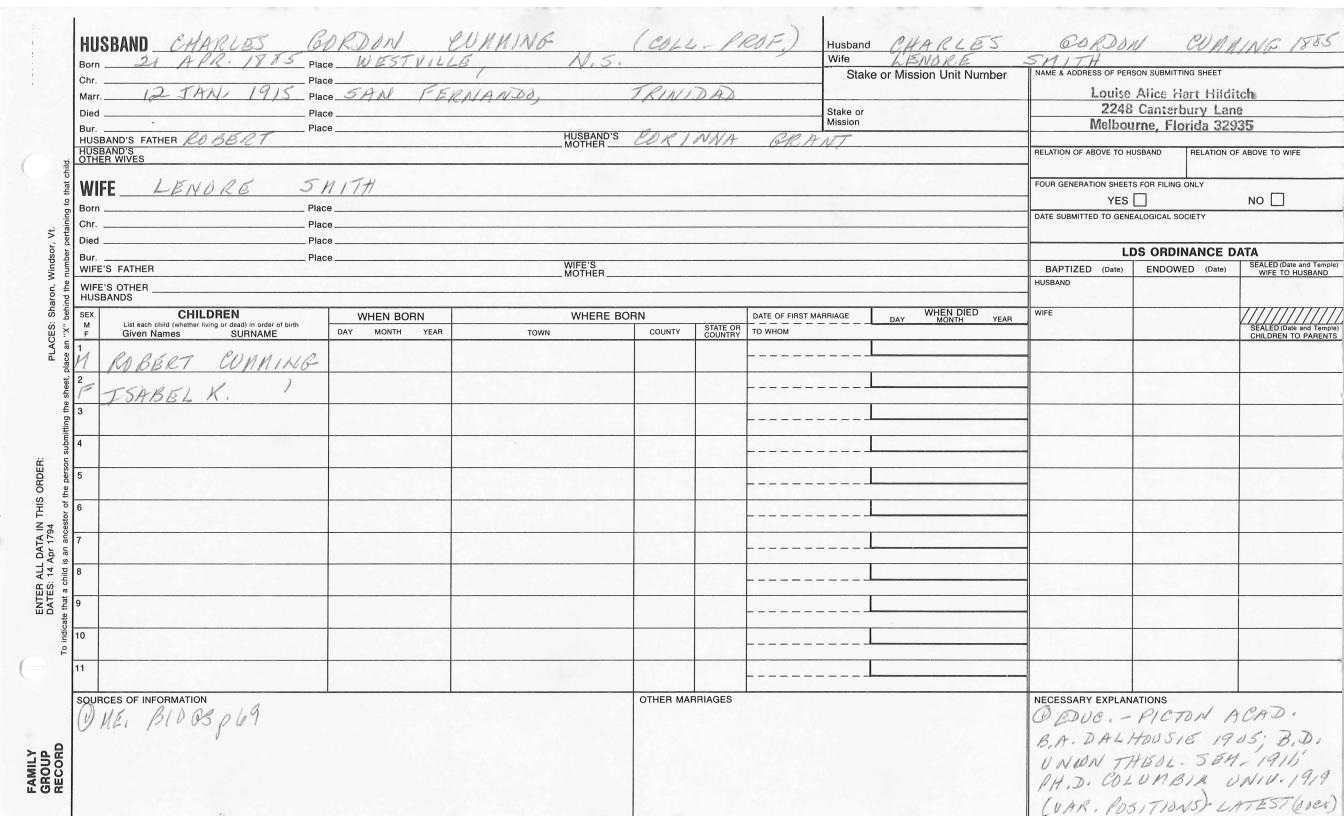 HUSBAND CHARLES GORDON CUMMING (COLL-PROF.)
Born 21 APR. 1885 Place WESTVILLE, N.S.
Chr. Place
Marr. 12 JAN. 1915 Place SAN FERNANDO, TRINIDAD
Died Place
Bur. Place
HUSBAND'S FATHER ROBERT HUSBAND'S MOTHER CORINNA GRANT
HUSBAND'S OTHER WIVES
Husband CHARLES GORDON CUMMING 1885
Wife LENORE SMITH
Stake or Mission Unit Number
Stake or Mission
NAME & ADDRESS OF PERSON SUBMITTING SHEET
Louise Alice Hart Hilditch
2248 Canterbury Lane
Melbourne, Florida 32935
RELATION OF ABOVE TO HUSBAND RELATION OF ABOVE TO WIFE
FOUR GENERATION SHEETS FOR FILING ONLY
YES NO
DATE SUBMITTED TO GENEALOGICAL SOCIETY
WIFE LENORE SMITH
Born Place
Chr. Place
Died Place
Bur. Place
WIFE'S FATHER WIFE'S MOTHER
WIFE'S OTHER HUSBANDS
LDS ORDINANCE DATA
BAPTIZED (Date) ENDOWED (Date) SEALED (Date and Temple) WIFE TO HUSBAND
HUSBAND
WIFE
SEALED (Date and Temple) CHILDREN TO PARENTS
SEX M F
CHILDREN
List each child (whether living or dead) in order of birth
Given Names SURNAME
WHEN BORN
DAY MONTH YEAR
WHERE BORN
TOWN COUNTY STATE OR COUNTRY
DATE OF FIRST MARRIAGE
TO WHOM
WHEN DIED
DAY MONTH YEAR
1 M ROBERT CUMMING
2 F ISABEL K. )
3
4
5
6
7
8
9
10
11
SOURCES OF INFORMATION
① ME. BIOGS p 69
OTHER MARRIAGES
NECESSARY EXPLANATIONS
① EDUC. - PICTON ACAD.
B.A. DALHOUSIE 1905; B.D.
UNION THEOL. SEM. 1911;
PH.D. COLUMBIA UNIV. 1919
(VAR. POSITIONS) LATEST (over)
PLACES: Sharon, Windsor, Vt.
ENTER ALL DATA IN THIS ORDER:
DATES: 14 Apr 1794
To indicate that a child is an ancestor of the person submitting the sheet, place an "X" behind the number pertaining to that child.
FAMILY
GROUP
RECORD